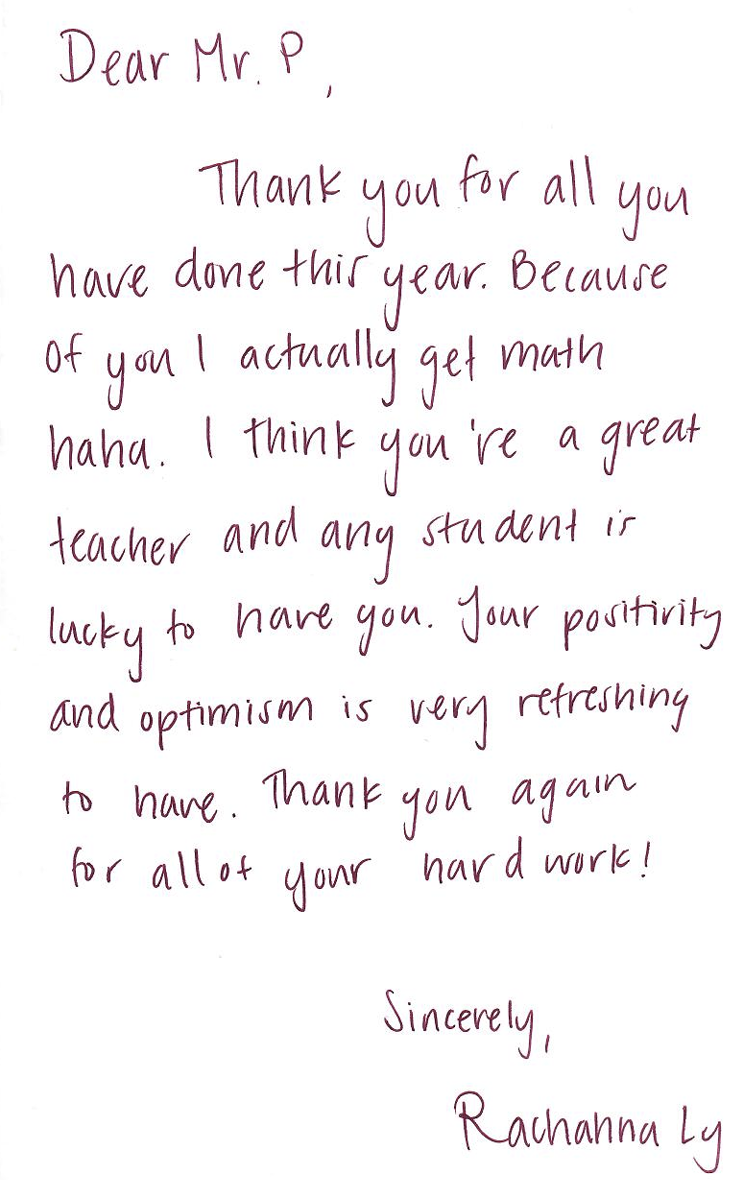 Dear Mr. P,
Thank you for all you
have done this year. Because
of you I actually get math
haha. I think you're a great
teacher and any student is
lucky to have you. Your positivity
and optimism is very refreshing
to have. Thank you again
for all of your hard work!
Sincerely,
Rachanna Ly